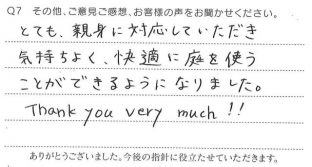 Q7 その他、ご意見ご感想、お客様の声をお聞かせください。
とても、親身に対応していただき
気持ちよく、快適に庭を使う
ことができるようになりました。
Thank you very much!!
ありがとうございました。今後の指針に役立たせていただきます。